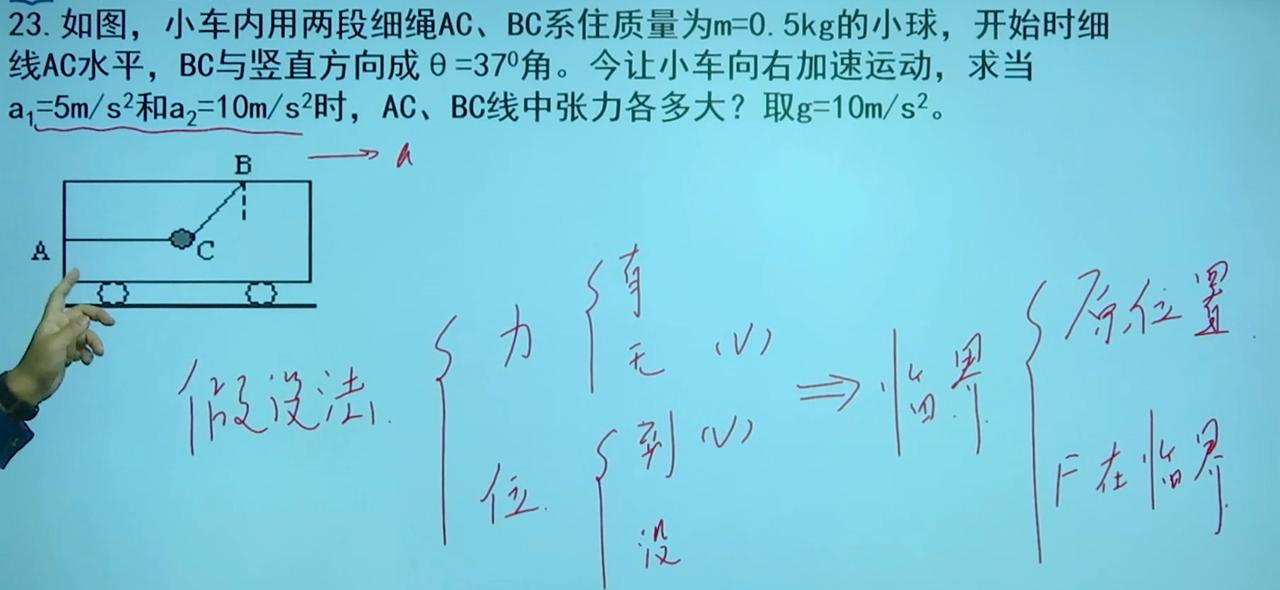 23. 如图，小车内用两段细绳AC、BC系住质量为m=0.5kg的小球，开始时细
线AC水平，BC与竖直方向成θ=37⁰角。今让小车向右加速运动，求当
a₁=5m/s²和a₂=10m/s²时，AC、BC线中张力各多大？取g=10m/s²。
a
B
A
C
假设法
力
有
无 (√)
位
到 (√)
没
⇒ 临界
原位置
F在临界